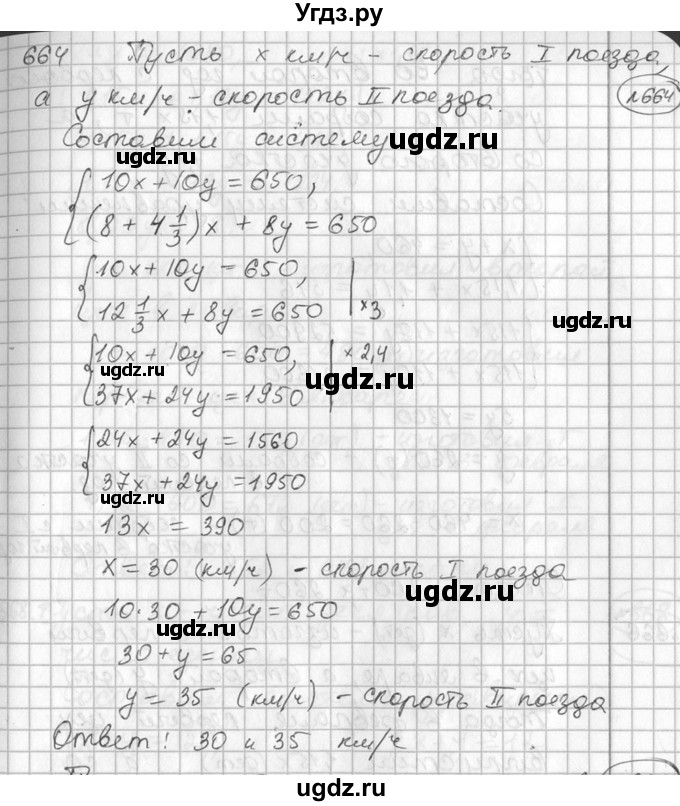 Угдз.ру
664 Пусть x км/ч - скорость I поезда,
а y км/ч - скорость II поезда.
№664
Составим систему
ugdz.ru ugdz.ru
10x + 10y = 650,
(8 + 4 1/3)x + 8y = 650
ugdz.ru
10x + 10y = 650,
12 1/3 x + 8y = 650 | ×3
ugdz.ru
ugdz.ru
10x + 10y = 650, | × 2,4
ugdz.ru ugdz.ru
37x + 24y = 1950
24x + 24y = 1560
37x + 24y = 1950
ugdz.ru
13x = 390
x = 30 (км/ч) - скорость I поезда
ugdz.ru
10·30 + 10y = 650
ugdz.ru
30 + y = 65
y = 35 (км/ч) - скорость II поезда
ugdz.ru
Ответ: 30 и 35 км/ч
ugdz.ru ugdz.ru